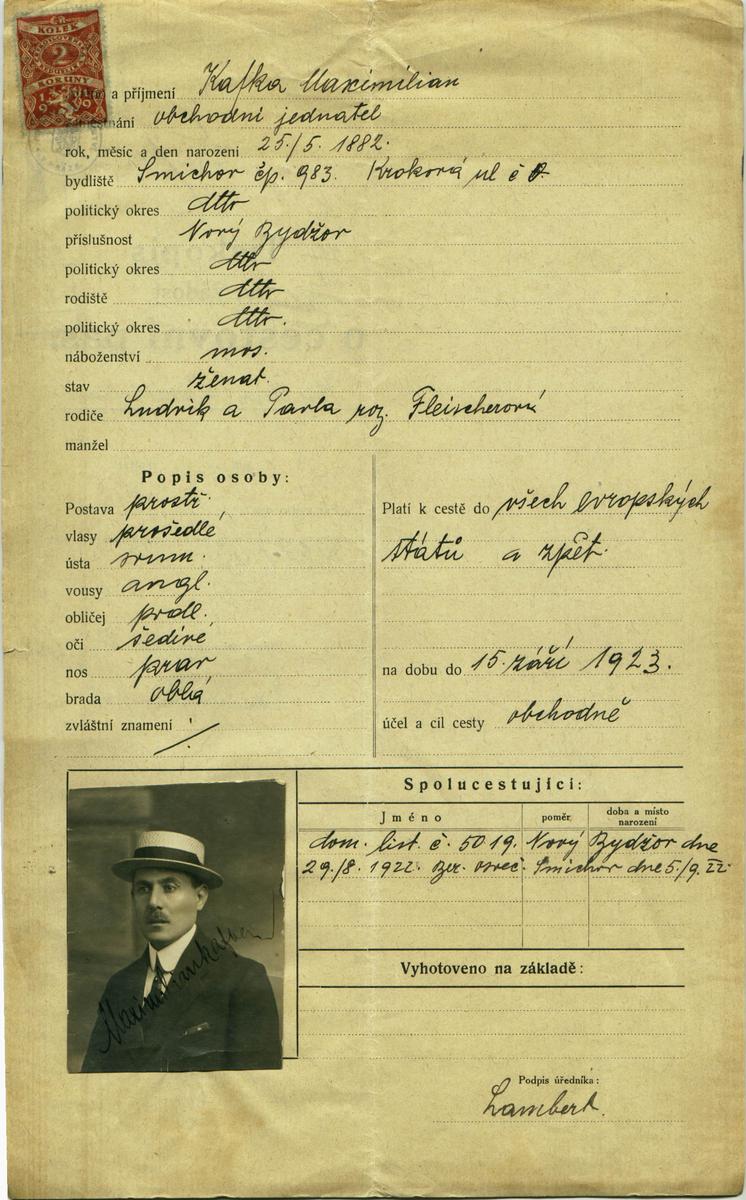 ČR
KOLEK
2
KORUNY
1919
a příjmení Kafka Maximilian
obchodní jednatel
rok, měsíc a den narození 25./5. 1882.
bydliště Smichov čp. 983. Kroková ul č
politický okres dtto
příslušnost Nový Bydžov
politický okres dtto
rodiště dtto
politický okres dtto.
náboženství mos.
stav ženat.
rodiče Ludvik a Pavla roz. Fleischerová
manžel
Popis osoby:
Postava prostř.
vlasy prošedlé
ústa soum.
vousy angl.
obličej prodl.
oči šedivé
nos prav
brada oblá
zvláštní znamení :/
Platí k cestě do všech evropských
států a zpět.
na dobu do 15. září 1923.
účel a cíl cesty obchodně
Spolucestující:
Jméno poměr doba a místo narození
dom. list. č. 5019. Nový Bydžov dne
29./8. 1922. Ber. osvěč. Smichov dne 5./9. 22
Vyhotoveno na základě:
Maximilian Kafka
Podpis úředníka:
Lambert.